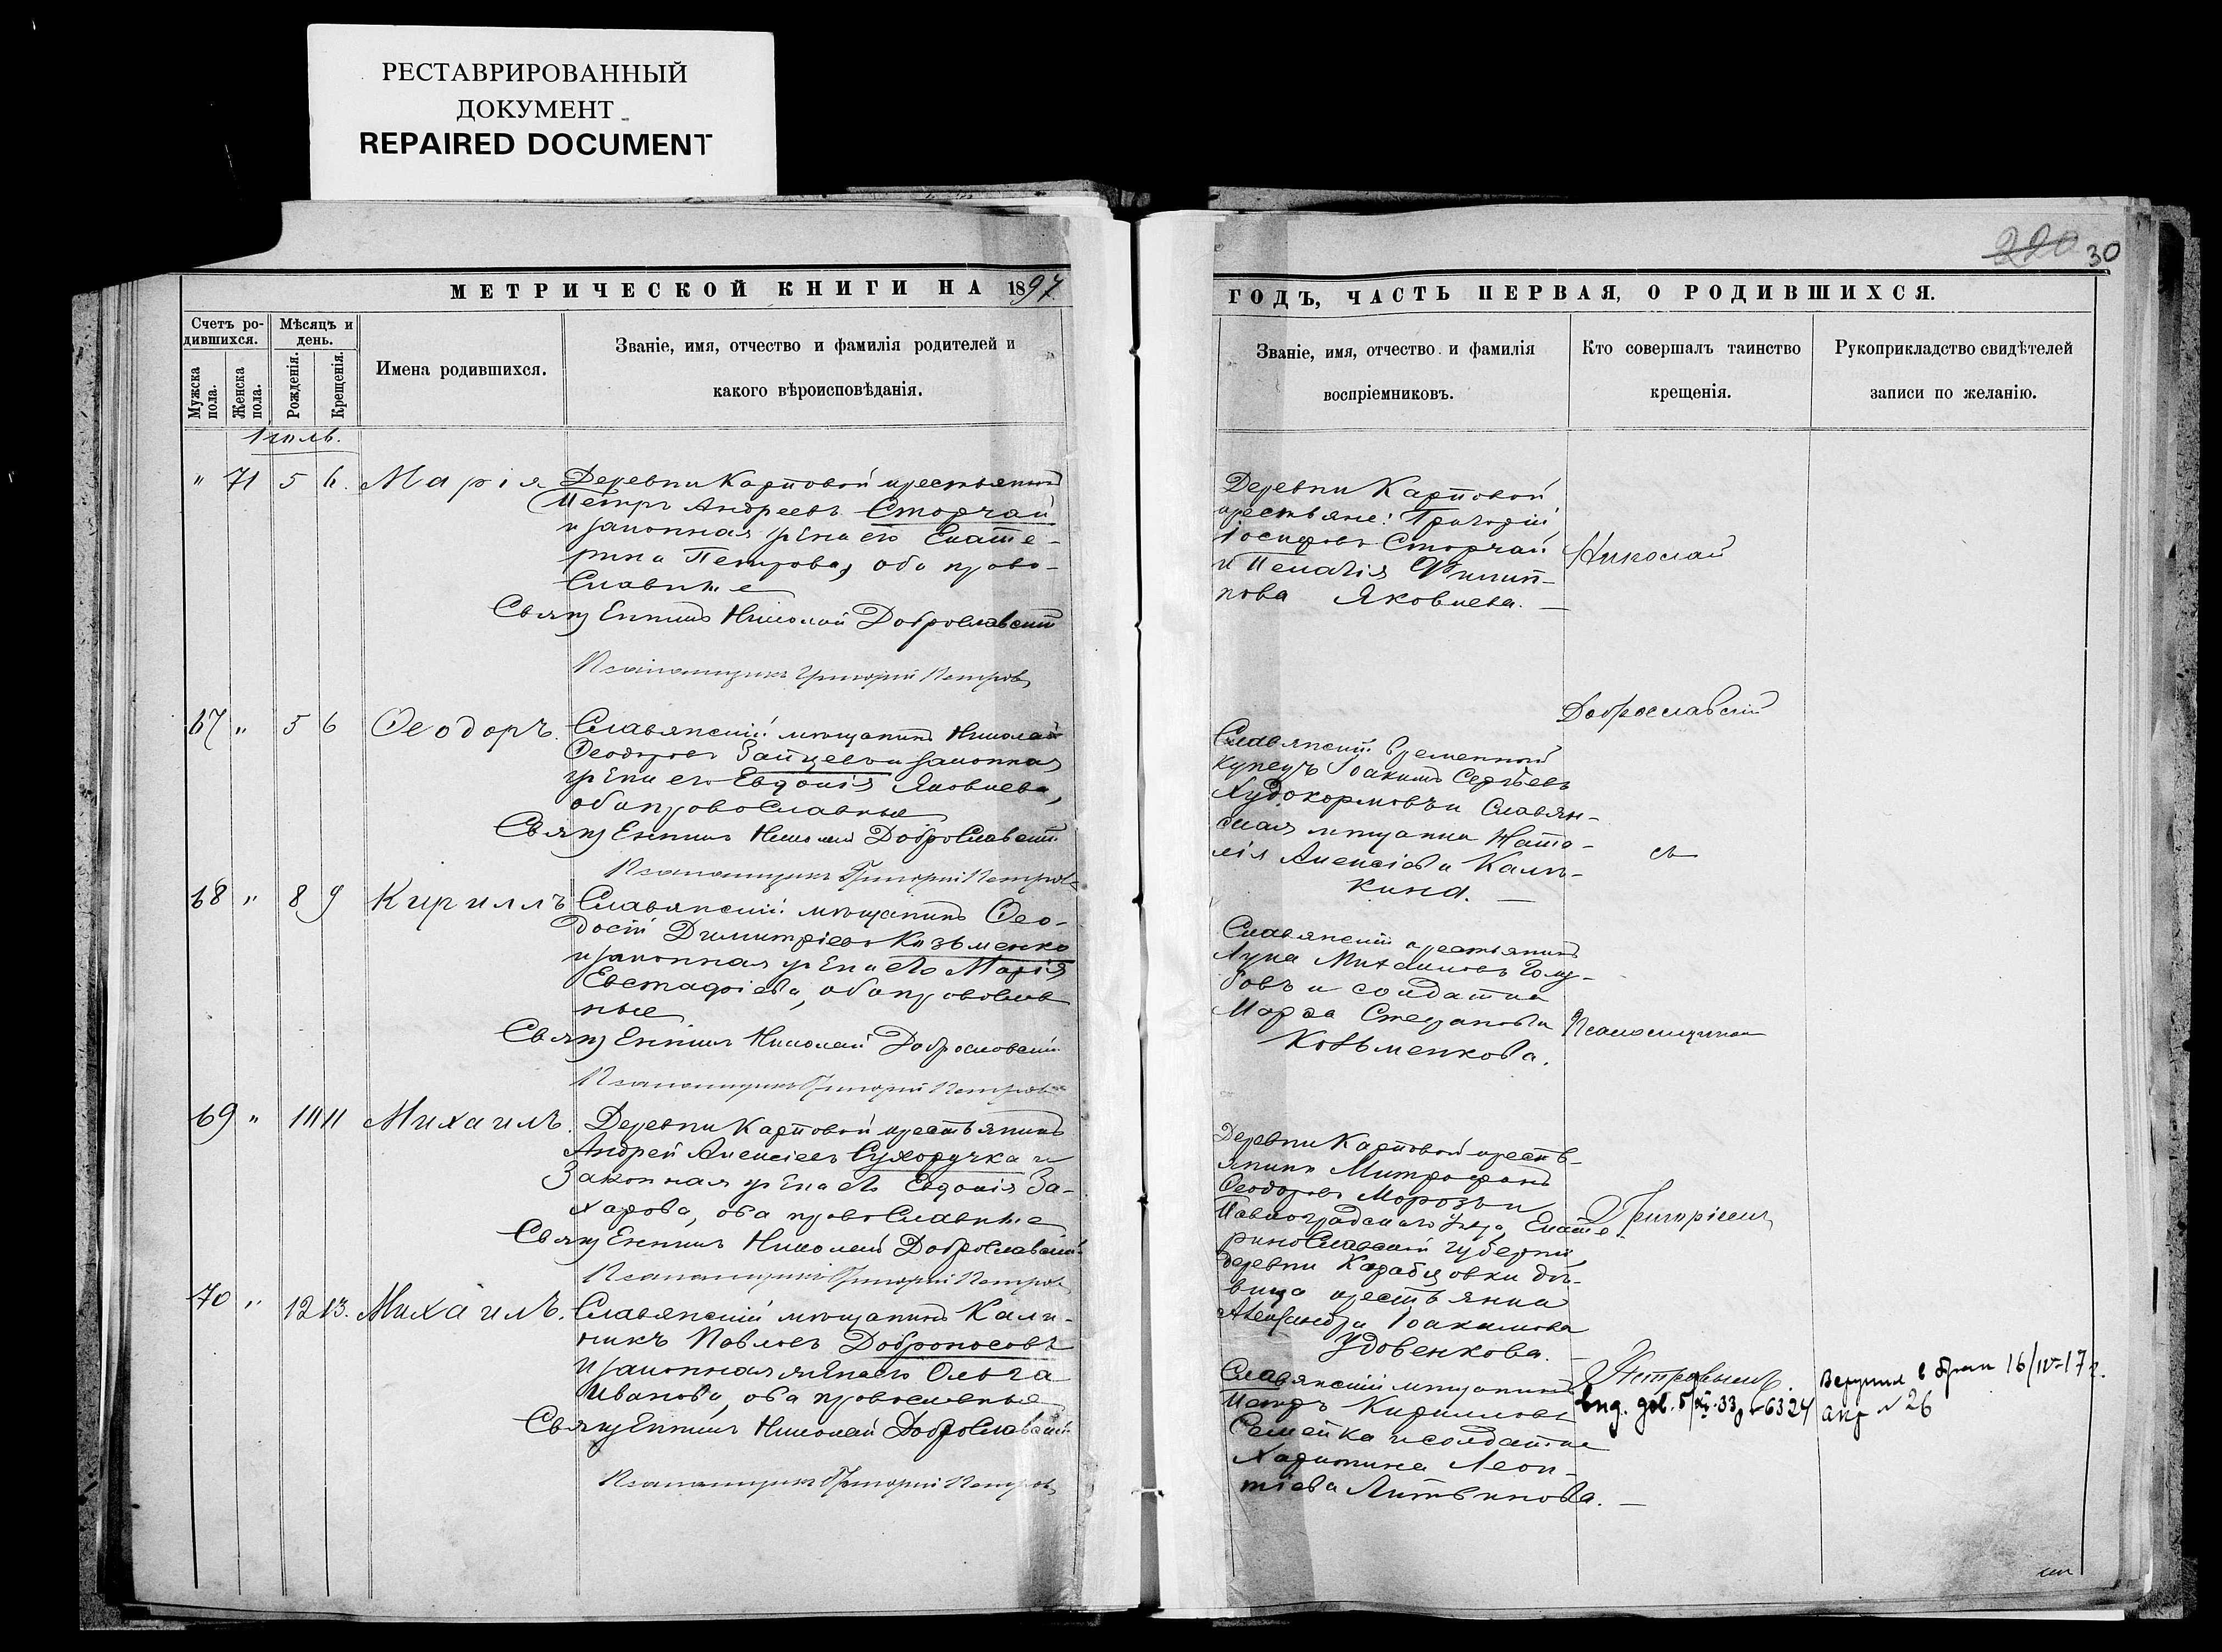 РЕСТАВРИРОВАННЫЙ
ДОКУМЕНТ
REPAIRED DOCUMENT
220 30
МЕТРИЧЕСКОЙ КНИГИ НА 1897
Счетъ ро-
дившихся.
Мужска
пола.
Женска
пола.
Мѣсяцъ и
день.
Рожденія.
Крещенія.
Имена родившихся.
Званіе, имя, отчество и фамилія родителей и
какого вѣроисповѣданія.
Іюль.
" 71 5 6. Марія
Деревни Карповой крестьянинъ
Петръ Андреевъ Сторчай
и законная жена его Екате-
рина Петрова, оба право-
славные
Священникъ Николай Доброславскій
Псаломщикъ Григорій Петровъ
67 " 5 6 Ѳеодоръ.
Славянскій мѣщанинъ Николай
Ѳеодоровъ Зайцевъ и законная
жена его Евдокія Яковлева,
оба православные
Священникъ Николай Доброславскій
Псаломщикъ Григорій Петровъ
68 " 8 9 Кириллъ
Славянскій мѣщанинъ Ѳео-
досій Димитріевъ Козьменко
и законная жена его Марія
Евстафіева, оба православ
ные
Священникъ Николай Доброславскій
Псаломщикъ Григорій Петровъ
69 " 11 11 Михаилъ.
Деревни Карповой крестьянинъ
Андрей Алексіевъ Сухоручка и
законная жена его Евдокія За-
харова, оба православные
Священникъ Николай Доброславскій
Псаломщикъ Григорій Петровъ
70 " 12 13. Михаилъ.
Славянскій мѣщанинъ Кали-
никъ Павловъ Доброносовъ
и законная жена его Ольга
Иванова, оба православные
Священникъ Николай Доброславскій
Псаломщикъ Григорій Петровъ
ГОДЪ, ЧАСТЬ ПЕРВАЯ, О РОДИВШИХСЯ.
Званіе, имя, отчество и фамилія
воспріемниковъ.
Кто совершалъ таинство
крещенія.
Рукоприкладство свидѣтелей
записи по желанію.
Деревни Карповой
крестьяне: Григорій
Іосифовъ Сторчай
и Пелагія Филип-
пова Яковлева. —
Славянскій временный
купецъ Іоакимъ Сергѣевъ
Худокормовъ и Славян-
ская мѣщанка Ната-
лія Алексіева Калы-
кина. —
Славянскій крестьянинъ
Лука Михаиловъ
и солдатка
Марѳа Стефанова
Козьменкова.
Деревни Карповой кресть-
янинъ Митрофанъ
Ѳеодоровъ Морозъ и
Павлоградскаго уѣзда, Екате
ринославской губерніи
деревни Карабиновки дѣ-
вица крестьянка
Александра Іоакимова
Удовенкова. —
Славянскій мѣщанинъ
Петръ Кирилловъ
Семейка и солдатка
Харитина Леон-
тіева Литвинова. —
Николай
Доброславскій
съ
Псаломщикомъ
Григоріемъ
Петровымъ
выд. 6324
Вступил в брак 16/IV-17 г.
акт № 26